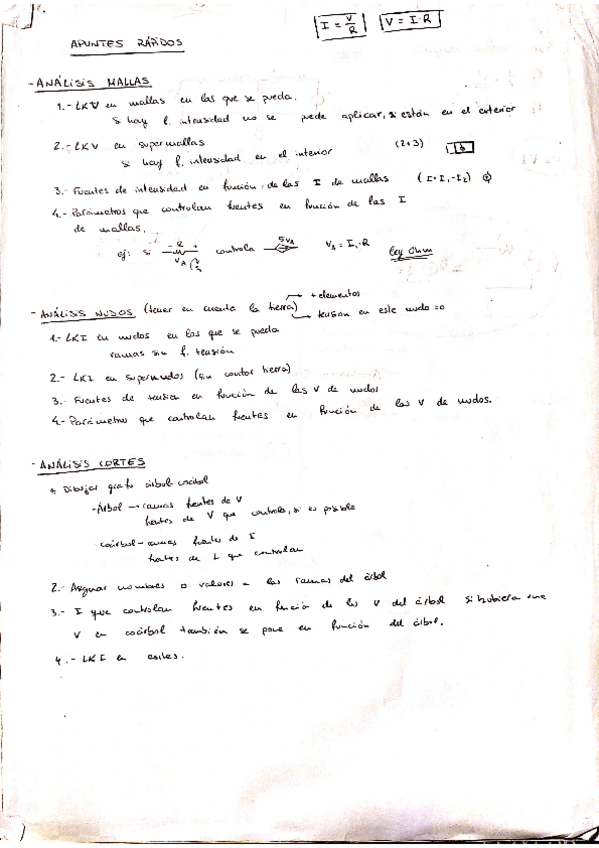 I = V/R   V = I·R
APUNTES RÁPIDOS
- ANÁLISIS MALLAS
1.- LKV en mallas en las que se pueda.
Si hay f. intensidad no se puede aplicar, si están en el exterior
2.- LKV en supermallas (2+3)
si hay f. intensidad en el interior
3.- Fuentes de intensidad en función de las I de mallas (I = I₁ - I₂)
4.- Parámetros que controlan fuentes en función de las I
de mallas.
ej: si - R + controla 5VA VA = I₁·R ley Ohm
VA
- ANÁLISIS NUDOS (tener en cuenta la tierra) → + elementos
→ tensión en este nudo = 0
1.- LKI en nudos en los que se pueda
ramas sin f. tensión
2.- LKI en supernudos (sin contar tierra)
3.- Fuentes de tensión en función de las V de nudos
4.- Parámetros que controlan fuentes en función de las V de nudos.
- ANÁLISIS CORTES
Dibujar grafo árbol-coárbol
- Árbol → ramas fuentes de V
fuentes de V que controla, si es posible
coárbol → ramas fuentes de I
fuentes de I que controlan
2.- Asignar nombres o valores a las ramas del árbol
3.- I que controlan fuentes en función de las V del árbol si hubiera una
V en coárbol también se pone en función del árbol.
4.- LKI en cortes.